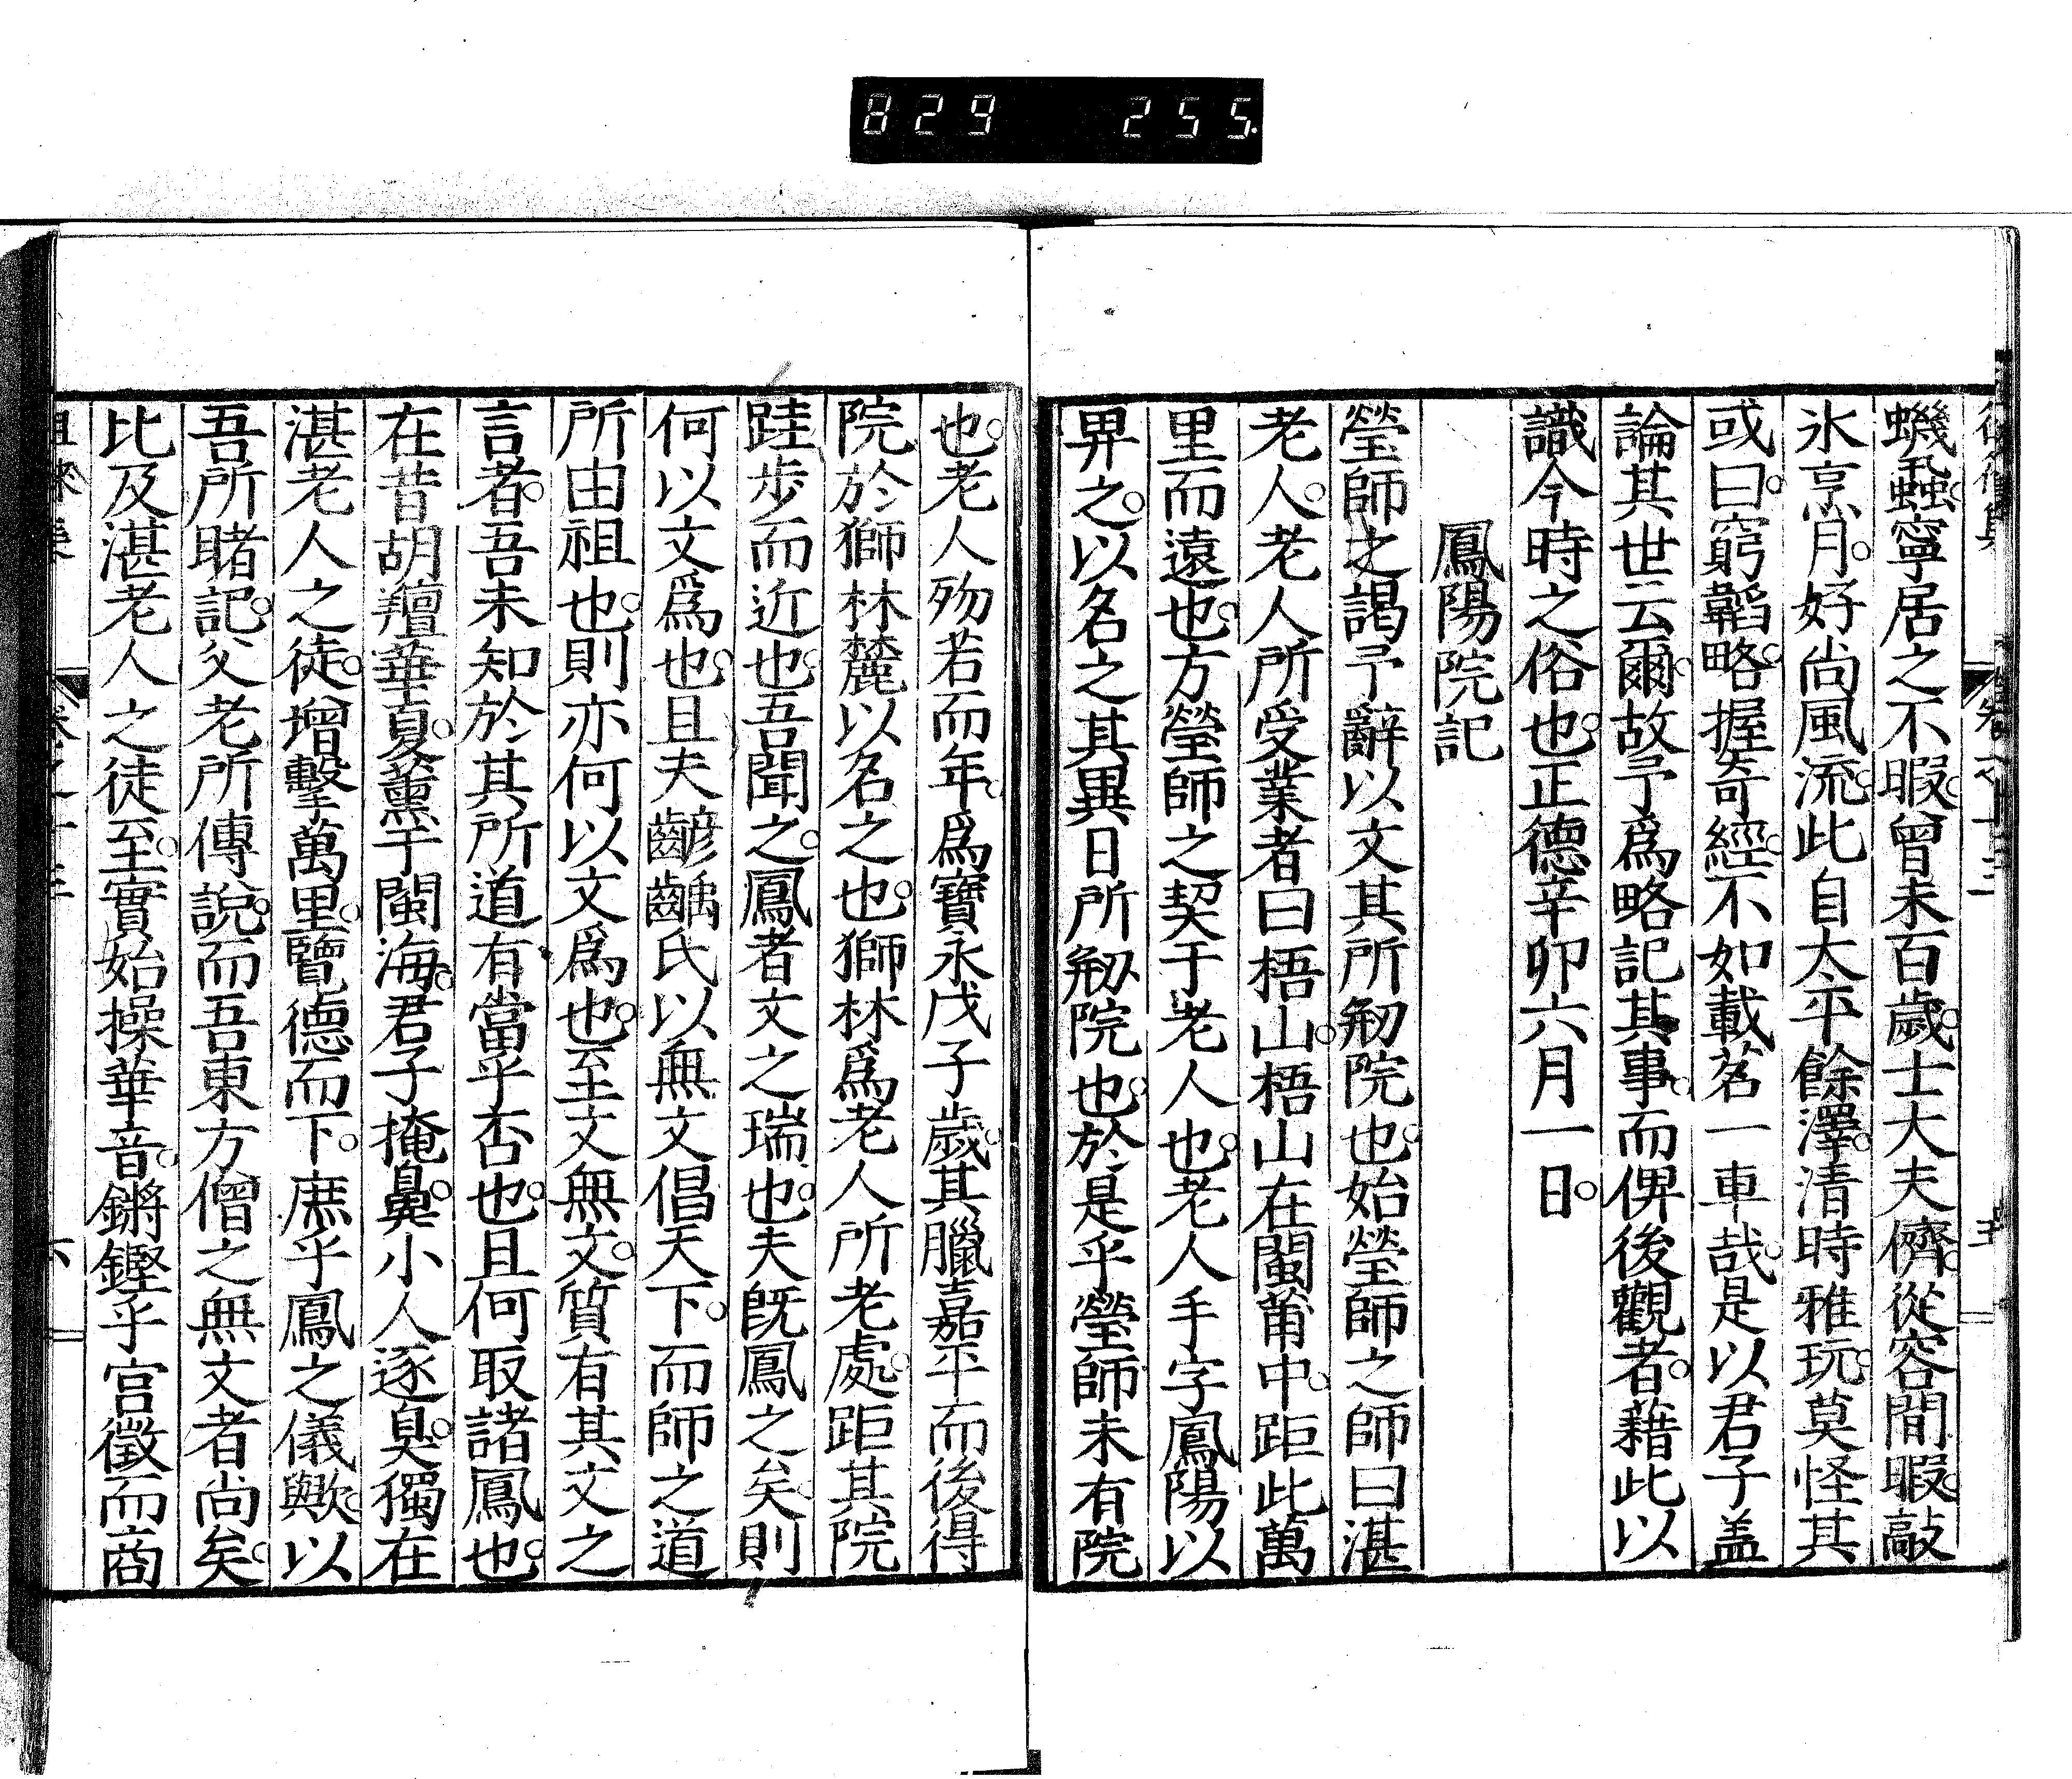 829 255
蟣蝨。寧居之不暇。曾未百歲。士大夫儕。從容間暇。敲
氷烹月。好尚風流。此自太平餘澤。清時雅玩。莫怪其
或曰。窮韜略。握奇經。不如載茗一車哉。是以君子盖
論其世云爾。故予爲略記其事。而俾後觀者。藉此以
識今時之俗也。正德辛卯六月一日。
鳳陽院記
瑩師之謁予辭以文其所剏院也。始瑩師之師曰湛
老人。老人所受業者曰梧山。梧山在閩莆中。距此萬
里而遠也。方瑩師之契于老人也。老人手字鳳陽以
畀之。以名之其異日所剏院也。於是乎瑩師未有院
也。老人歾若而年。爲寶永戊子歲。其臘嘉平而後得
院於獅林麓以名之也。獅林爲老人所老處。距其院
跬步而近也。吾聞之。鳳者文之瑞也。夫既鳳之矣。則
何以文爲也。且夫齴齲氏以無文倡天下。而師之道
所由祖也。則亦何以文爲也。至文無文。質有其文之
言者。吾未知於其所道有當乎否也。且何取諸鳳也。
在昔胡羶華夏。薰于閩海。君子掩鼻。小人逐臭。獨在
湛老人之徒。增擊萬里。覽德而下。庶乎鳳之儀歟。以
吾所睹記。父老所傳說。而吾東方僧之無文者尚矣。
比及湛老人之徒至。實始操華音。鏘鏗乎宮徵而商